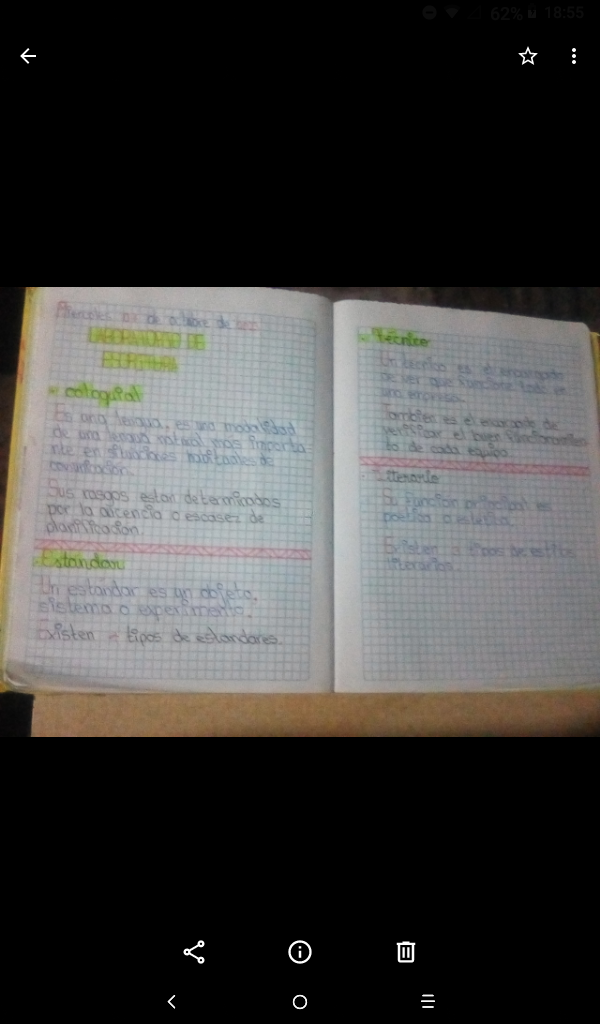 62% 18:55
Miércoles de octubre de
LABORATORIO DE
ESCRITURA
coloquial
Es una lengua, es una modalidad
de una lengua natural más importa
nte en situaciones habituales de
comunicación.
Sus rasgos están determinados
por la o escasez de
planificación.
Estándar
Un estándar es un objeto,
sistema o experimento.
Existen tipos de estandares.
Técnico
Un técnico es el encargado
de ver que funcione todo en
una empresa.
También es el encargado de
verificar el buen funcionamien
to de cada equipo.
Literario
Su función principal es
poética o estética.
Existen tipos de estilos
literarios.